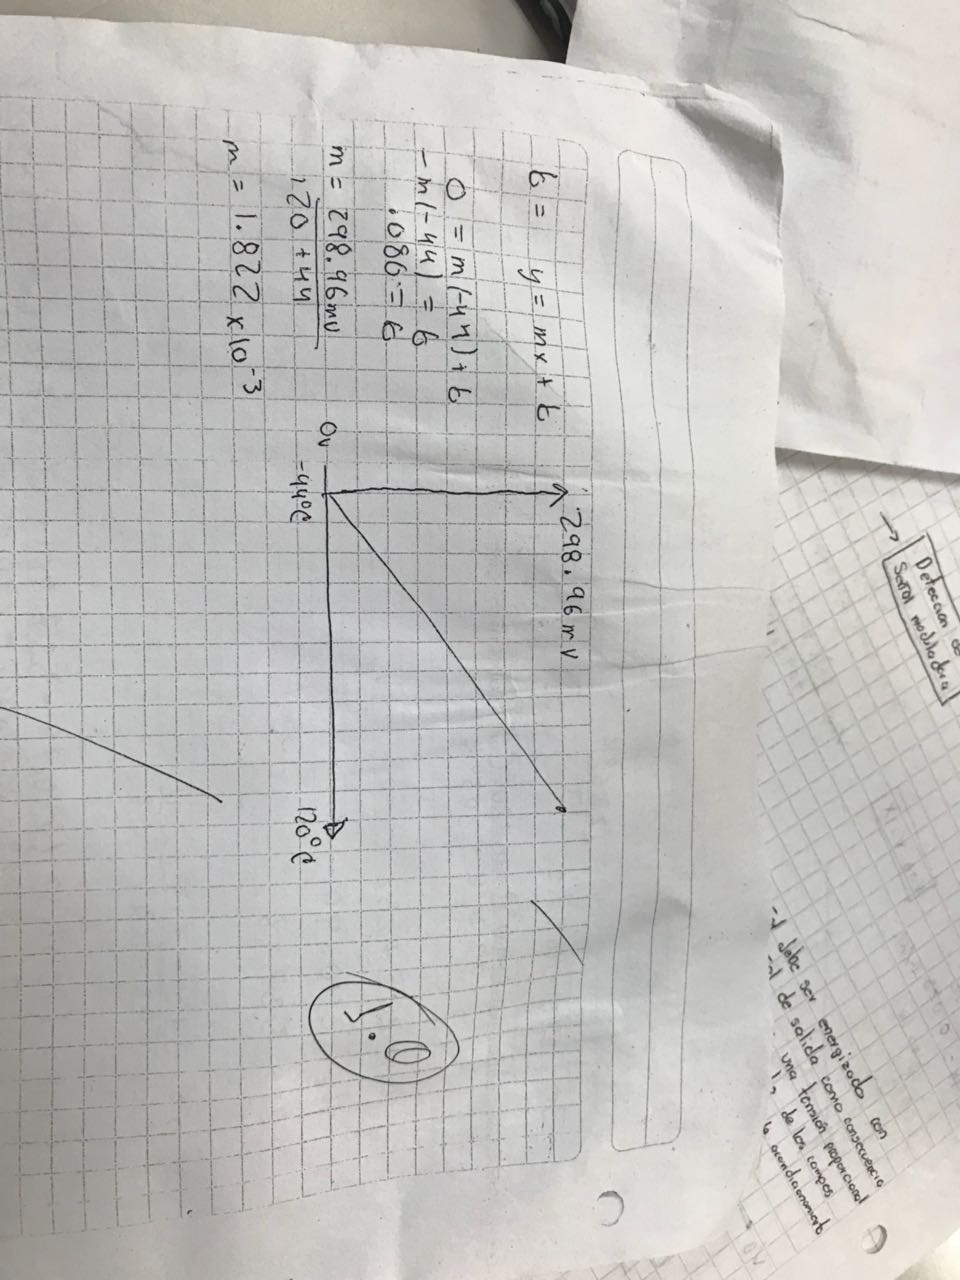 Detección de
Señal moduladora
debe ser energizado con
de salida como consecuencia
una tensión proporcional
de los campos
acondicionamiento
b = y = mx + b
298.96 mV
0 = m(-44) + b
-m(-44) = b
.080 = b
m = 298.96mv
120 + 44
m = 1.822 x10⁻³
0v
-44°C
120°C